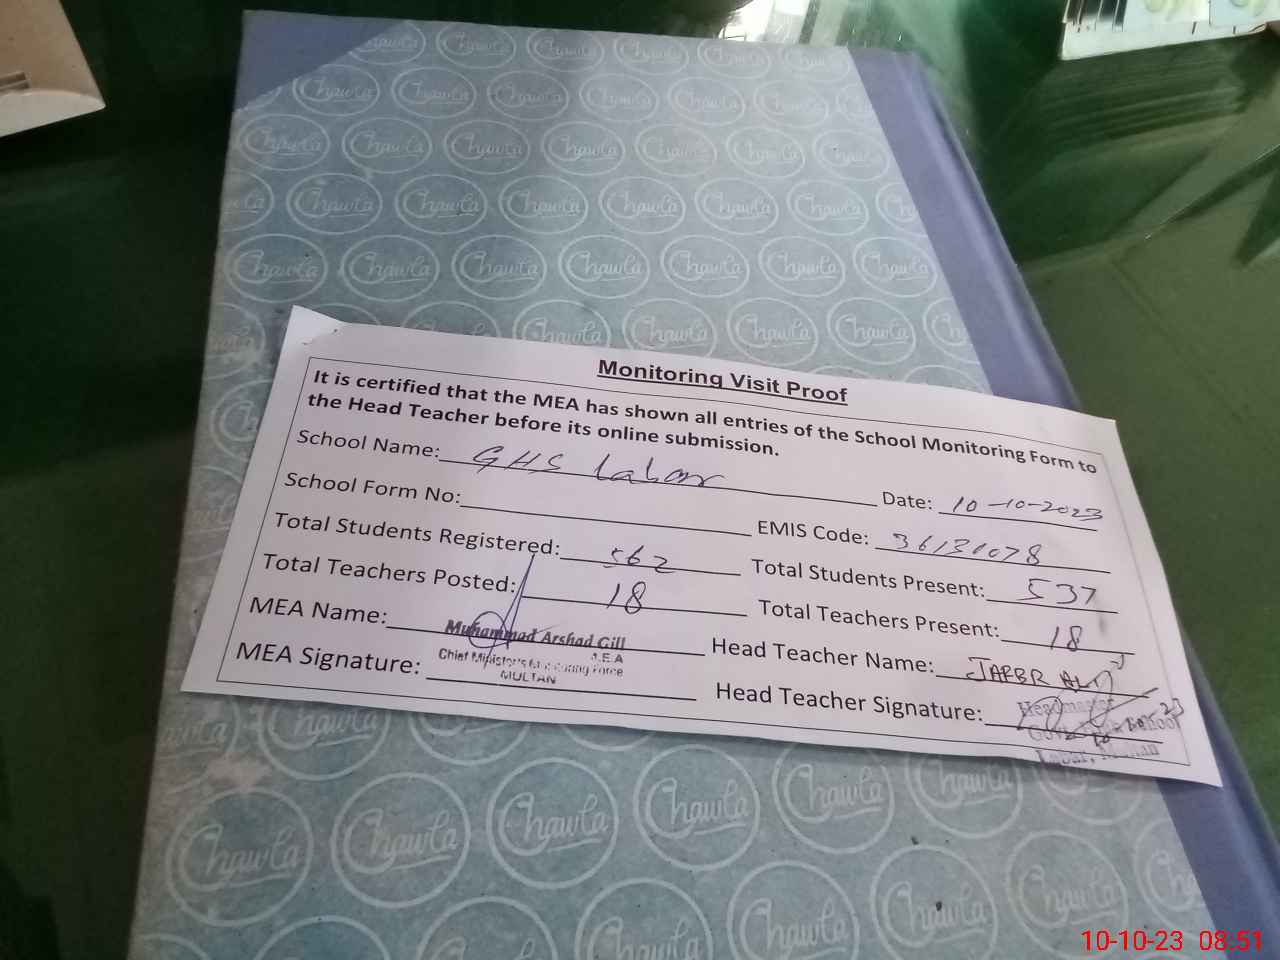 Monitoring Visit Proof
It is certified that the MEA has shown all entries of the School Monitoring Form to
the Head Teacher before its online submission.
School Name: GHS Labar Date: 10-10-2023
School Form No: EMIS Code: 36131078
Total Students Registered: 562 Total Students Present: 537
Total Teachers Posted: 18 Total Teachers Present: 18
MEA Name: Muhammad Arshad Gill Head Teacher Name: JAFBR ALI
M.E.A
Chief Minister's Monitoring Force
MULTAN
MEA Signature: Head Teacher Signature:
Headmaster
Govt. High School
Labar, Multan
Chawla
10-10-23 08:51